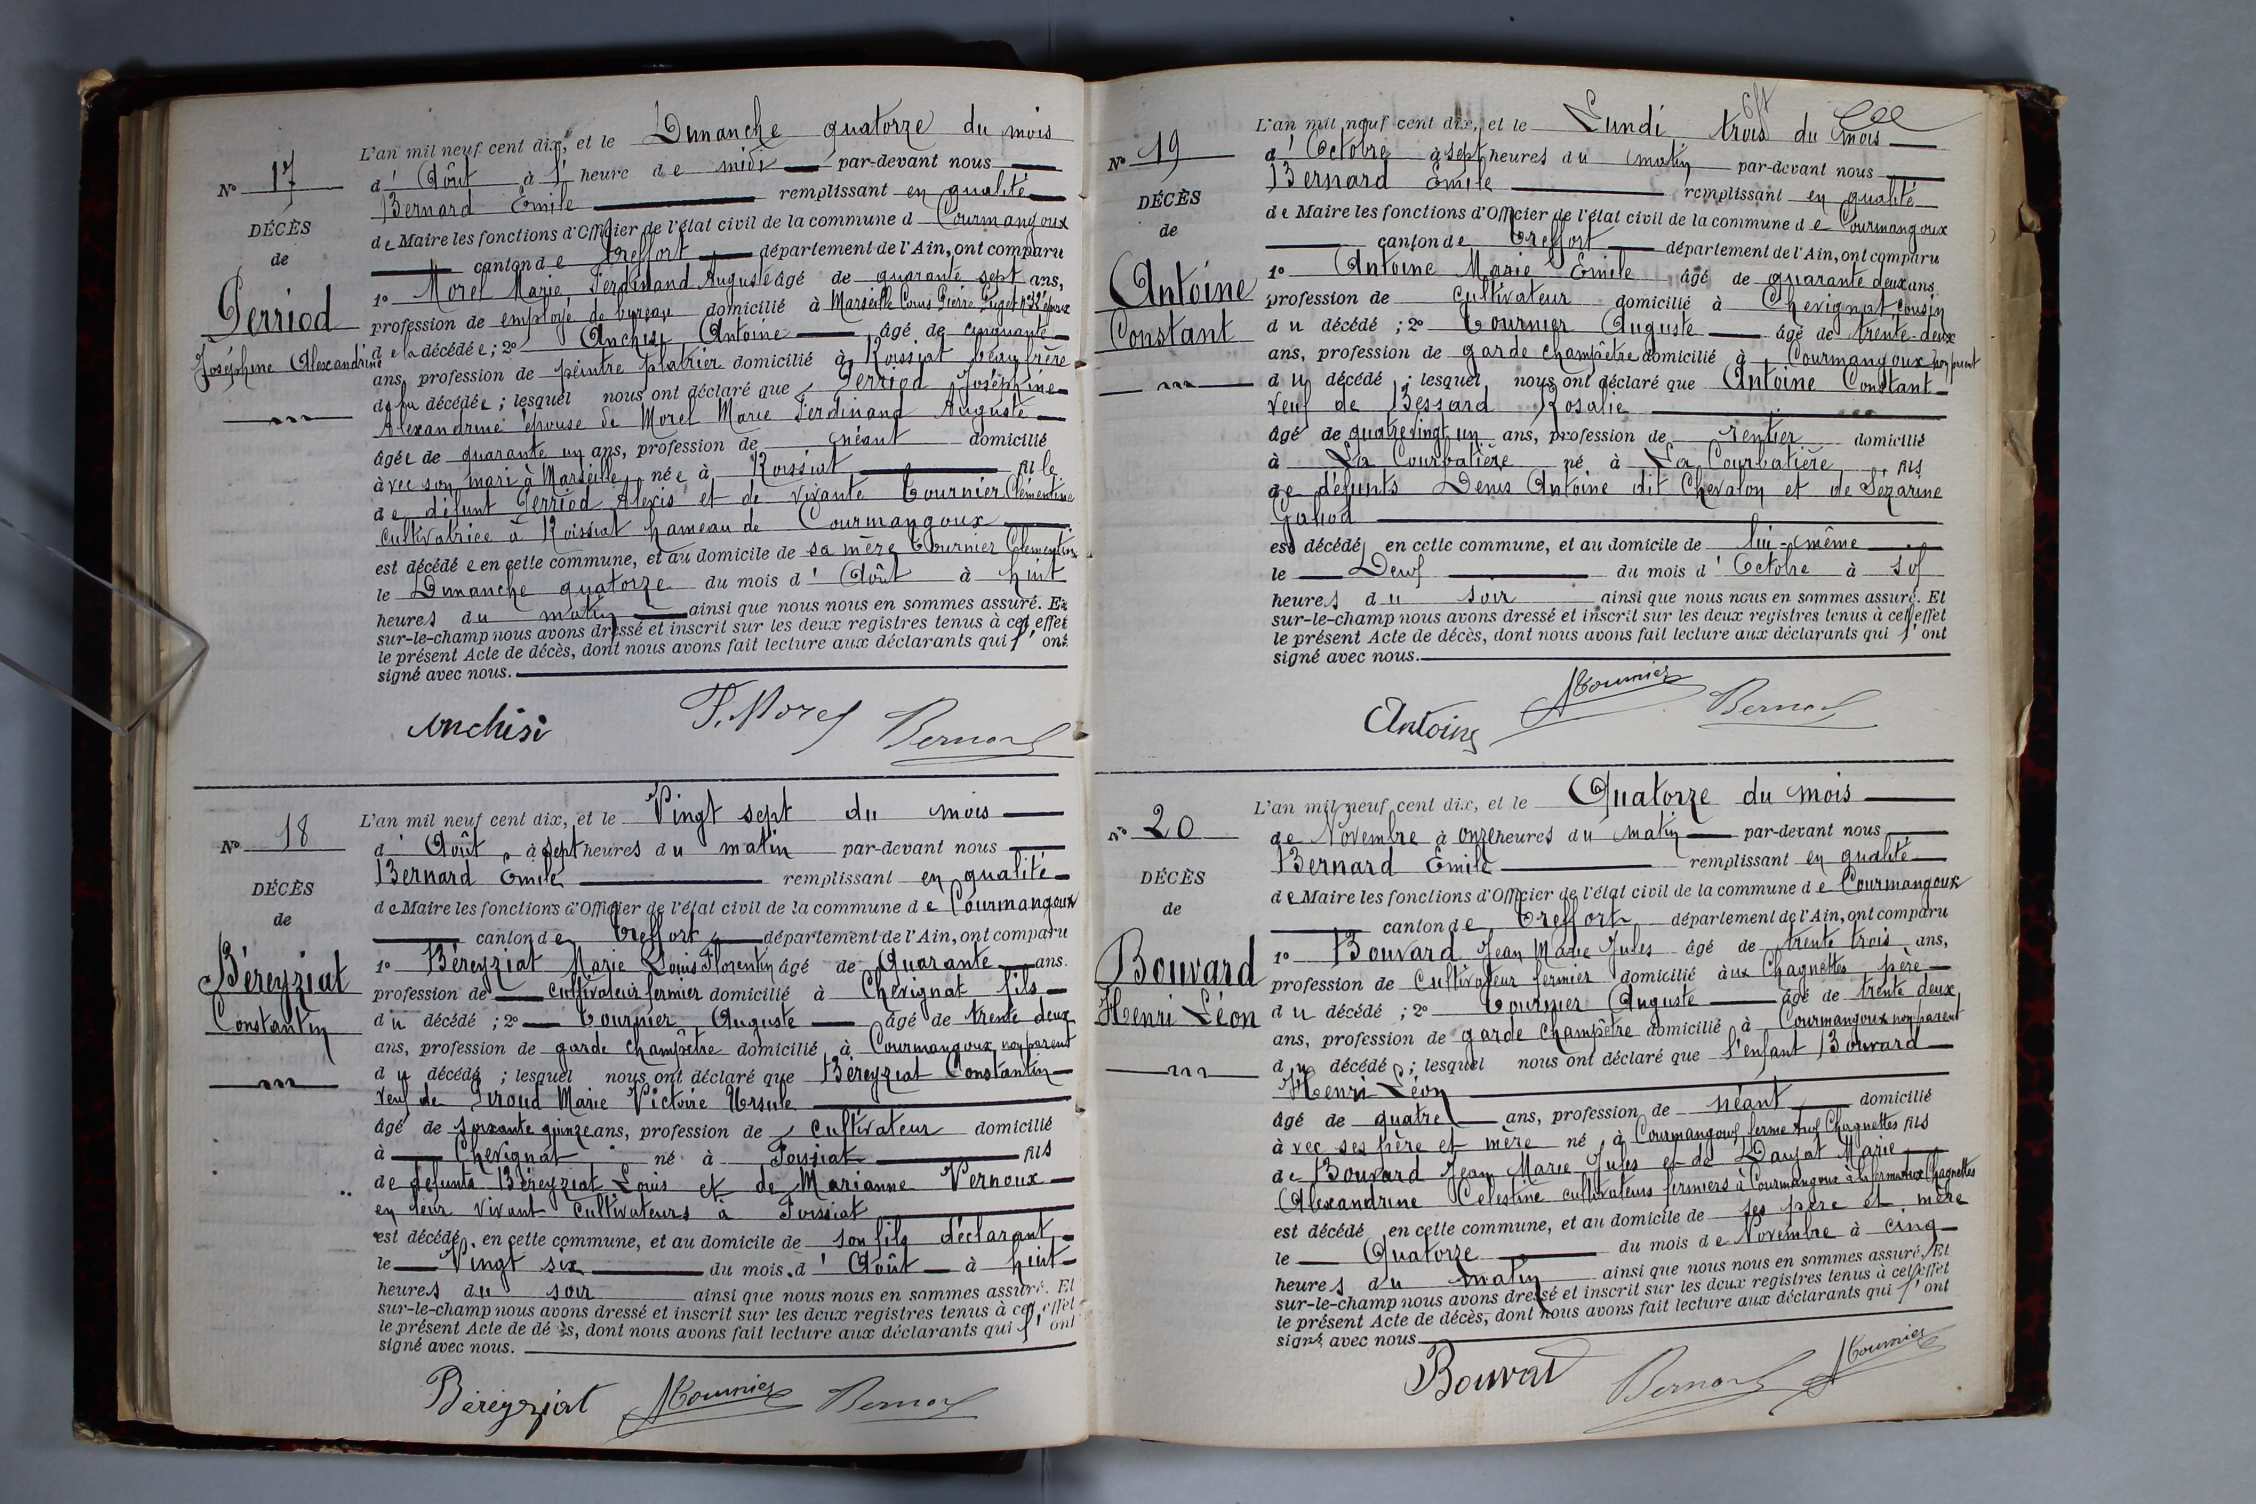 L'an mil neuf cent dix, et le Dimanche quatorze du mois
N° 17
d' Août à l' heure de midi par-devant nous
Bernard Emile remplissant en qualité
DÉCÈS
de Maire les fonctions d'Officier de l'état civil de la commune d Courmangoux
de
canton de Treffort département de l'Ain, ont comparu
1° Morel Marie Ferdinand Auguste âgé de quarante sept ans,
Perriod
profession de employé de bureau domicilié à Marseille Cours Pierre Puget n° 32 époux
Joséphine Alexandrine
de la décédée ; 2° Anchisi Antoine âgé de cinquante
ans, profession de peintre platrier domicilié à Roissiat beau frère
de la décédée ; lesquel nous ont déclaré que Perriod Joséphine
Alexandrine épouse de Morel Marie Ferdinand Auguste
âgée de quarante un ans, profession de néant domicilié
avec son mari à Marseille née à Roissiat fille
de défunt Perriod Alexis et de vivante Tournier Clémentine
cultivatrice à Roissiat hameau de Courmangoux
est décédée en cette commune, et au domicile de sa mère Tournier Clémentine
le Dimanche quatorze du mois d' Août à huit
heures du matin ainsi que nous nous en sommes assuré. Et
sur-le-champ nous avons dressé et inscrit sur les deux registres tenus à cet effet
le présent Acte de décès, dont nous avons fait lecture aux déclarants qui l' ont
signé avec nous.
Anchisi F. Morel Bernard
L'an mil neuf cent dix, et le Vingt sept du mois
N° 18
d' Août à sept heures du matin par-devant nous
Bernard Emile remplissant en qualité
DÉCÈS
de Maire les fonctions d'Officier de l'état civil de la commune de Courmangoux
de
canton de Treffort département de l'Ain, ont comparu
1° Béreyziat Marie Louis Florentin âgé de Quarante ans.
Béreyziat
profession de cultivateur fermier domicilié à Chevignat fils
Constantin
du décédé ; 2° Tournier Auguste âgé de trente deux
ans, profession de garde champêtre domicilié à Courmangoux non parent
du décédé ; lesquel nous ont déclaré que Béreyziat Constantin
veuf de Piroud Marie Victoire Ursule
âgé de soixante quinze ans, profession de cultivateur domicilié
à Chevignat né à Foissiat fils
de defunts Béreyziat Louis et de Marianne Vernoux
en leur vivant cultivateurs à Foissiat
est décédé en cette commune, et au domicile de son fils déclarant
le Vingt six du mois d' Août à huit
heures du soir ainsi que nous nous en sommes assuré. Et
sur-le-champ nous avons dressé et inscrit sur les deux registres tenus à cet effet
le présent Acte de décès, dont nous avons fait lecture aux déclarants qui l' ont
signé avec nous.
Béreyziat ATournier Bernard
L'an mil neuf cent dix, et le Lundi trois du mois
N° 19
d' Octobre à sept heures du matin par-devant nous
Bernard Emile remplissant en qualité
DÉCÈS
de Maire les fonctions d'Officier de l'état civil de la commune de Courmangoux
de
canton de Treffort département de l'Ain, ont comparu
1° Antoine Marie Emile âgé de quarante deux ans
Antoine
profession de cultivateur domicilié à Chevignat cousin
Constant
du décédé ; 2° Tournier Auguste âgé de trente-deux
ans, profession de garde champêtre domicilié à Courmangoux non parent
du décédé ; lesquel nous ont déclaré que Antoine Constant
veuf de Bessard Rosalie
âgé de quatre vingt un ans, profession de rentier domicilié
à La Courbatière né à La Courbatière fils
de défunts Denis Antoine dit Chevalon et de Sézarine
Gahod
est décédé en cette commune, et au domicile de lui-même
le Deux du mois d' Octobre à sept
heures du soir ainsi que nous nous en sommes assuré. Et
sur-le-champ nous avons dressé et inscrit sur les deux registres tenus à cet effet
le présent Acte de décès, dont nous avons fait lecture aux déclarants qui l' ont
signé avec nous.
Antoine ATournier Bernard
L'an mil neuf cent dix, et le Quatorze du mois
N° 20
de Novembre à onze heures du matin par-devant nous
Bernard Emile remplissant en qualité
DÉCÈS
de Maire les fonctions d'Officier de l'état civil de la commune de Courmangoux
de
canton de Treffort département de l'Ain, ont comparu
1° Bouvard Jean Marie Jules âgé de trente trois ans,
Bouvard
profession de cultivateur fermier domicilié aux Chagnettes père
Henri Léon
du décédé ; 2° Tournier Auguste âgé de trente deux
ans, profession de garde champêtre domicilié à Courmangoux non parent
du décédé ; lesquel nous ont déclaré que l'enfant Bouvard
Henri Léon
âgé de quatre ans, profession de néant domicilié
avec ses père et mère né à Courmangoux ferme aux Chagnettes fils
de Bouvard Jean Marie Jules et de Daujat Marie
Alexandrine Celestine cultivateurs fermiers à Courmangoux à la ferme aux Chagnettes
est décédé en cette commune, et au domicile de ses père et mère
le Quatorze du mois de Novembre à cinq
heures du matin ainsi que nous nous en sommes assuré. Et
sur-le-champ nous avons dressé et inscrit sur les deux registres tenus à cet effet
le présent Acte de décès, dont nous avons fait lecture aux déclarants qui l' ont
signé avec nous
Bouvard Bernard ATournier